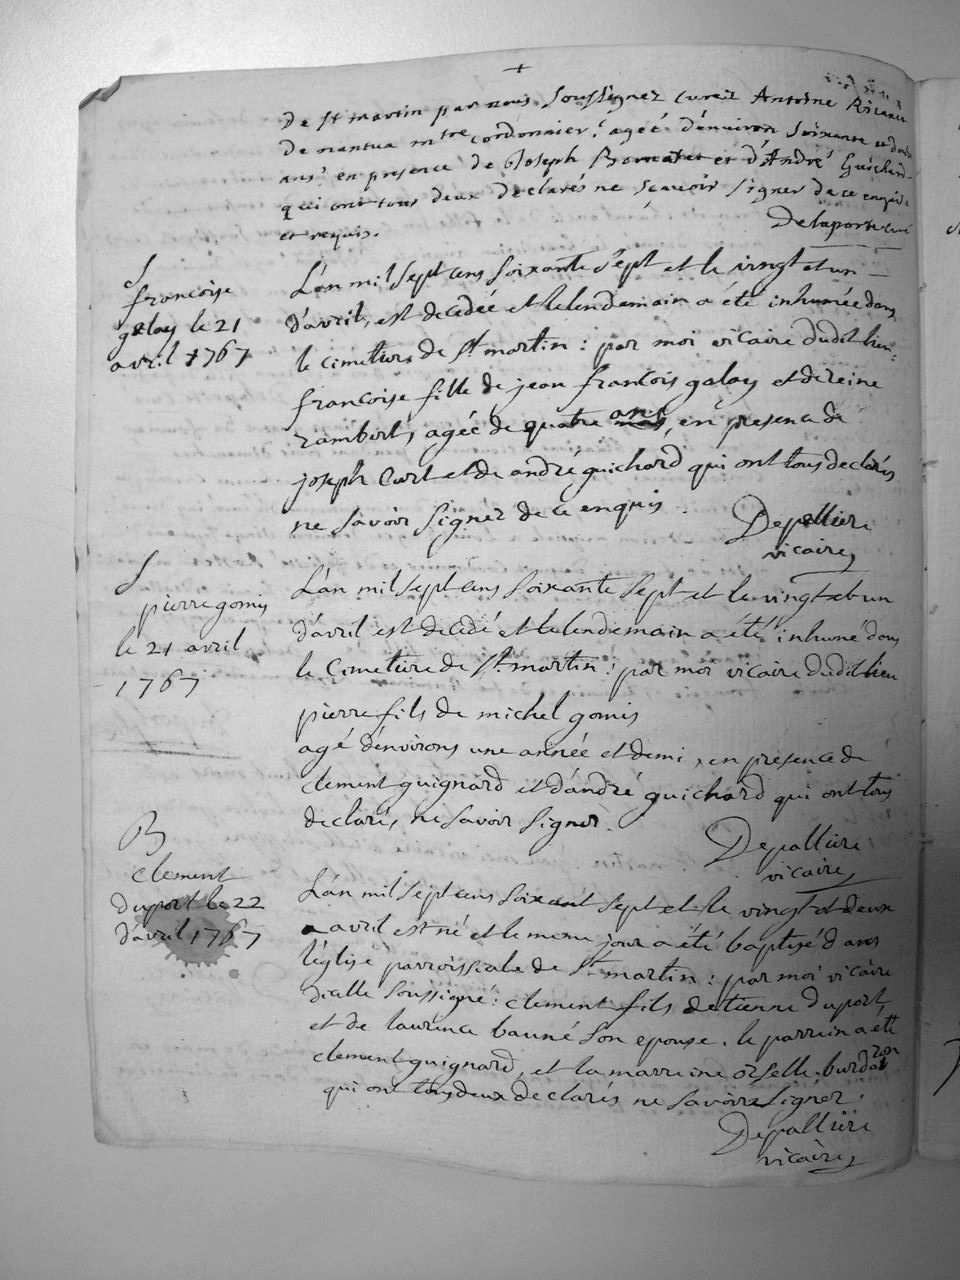 +
De St martin par nous Soussignez Cureé Antoine
De nantua mtre cordonnier, ageé d'environ Soixante et douze
ans, en presence de Joseph et d'André Guichard
qui ont tous deux declarés ne Scavoir Signer de ce enquis
et requis.
Delaporte curé
S
francoise
galay le 21
avril 1767
L'an mil sept cens soixante sept et le vingt et un
d'avril, est decedée et le lendemain a été inhumée dans
le cimetiere de St martin : par moi vicaire dudit lieu :
francoise fille de jean francois galay et de reine
rambert, agée de quatre ans, en presence de
joseph Curt et de andré guichard qui ont tous declarés
ne savoir signer de ce enquis.
Depalliere
vicaire
S
pierre gomis
le 21 avril
1767
L'an mil sept cens soixante sept et le vingt et un
d'avril est decedé et le lendemain a été inhumé dans
le Cimetiere de St martin : par moi vicaire dudit lieu
pierre fils de michel gomis
agé d'environs une année et demi, en presence de
clement guignard et d'andré guichard qui ont tous
declarés ne savoir signer.
Depalliere
vicaire
B
Clement
duport le 22
d'avril 1767
L'an mil sept cens soixant sept et le vingt et deux
avril est né et le meme jour a été baptisé dans
l'église parroissiale de St martin : par moi vicaire
dicelle soussigné : clement fils detienne duport,
et de laurence bauné son epouse. le parrein a été
clement guignard, et la marreine
qui ont tous deux declarés ne savoire signer.
Depalliere
vicaire